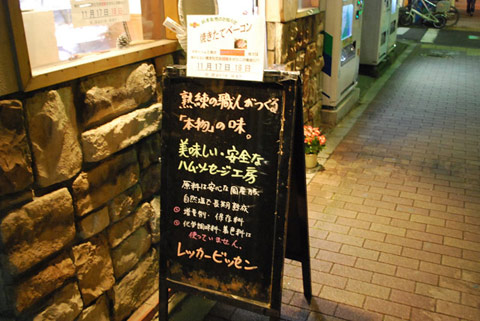 焼きたてベーコン
11月17日,18日
熟練の職人がつくる
「本物」の味。
美味しい・安全な
ハム・ソーセージ工房
原料は安心な国産豚
自然塩で長期熟成
増量剤・保存料
化学調味料・着色料は
使っていません。
レッカービッセン